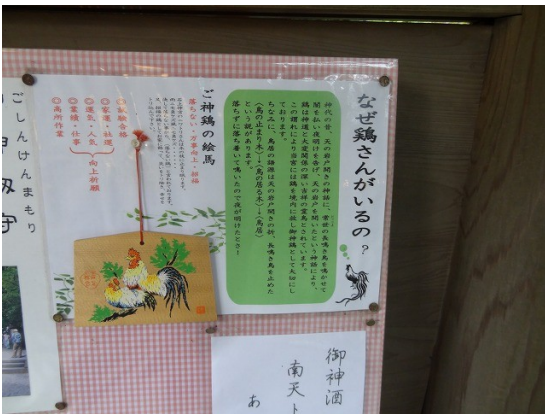 なぜ鶏さんがいるの？
神代の昔、天の岩戸開きの神話に、常世の長鳴き鳥を鳴かせて
闇を払い夜明けを告げ、天の岩戸を開いたという神話により、
鶏は神道と大変関係の深い吉祥の霊鳥とされています。
この謂れにより当宮には鶏を境内に放し御神鶏として大切にし
ております。
ちなみに、鳥居の語源は天の岩戸開きの折、長鳴き鳥を止めた
(鳥の止まり木)→(鳥の居る木)→(鳥居)
という説があります。
落ちずに落ち着いて鳴いたので夜が明けたとさ！
ご神鶏の絵馬
落ちない・万事向上・招福
◎試験合格
◎家運・社運
◎運気・人気
◎業績・仕事
◎高所作業
向上祈願
ごしんけんまもり
守
御神酒
南天
あ